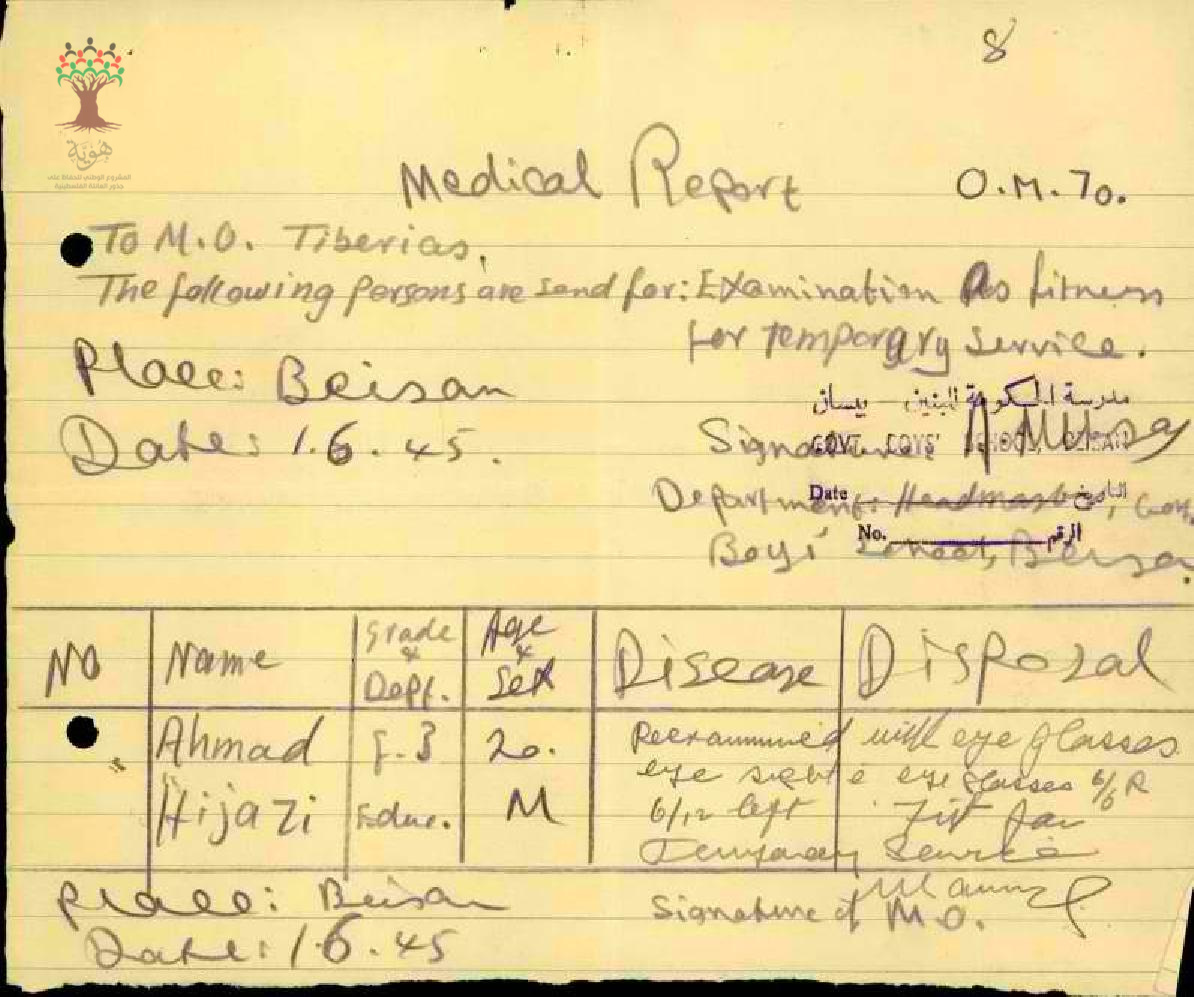 8
هوية
المشروع الوطني للحفاظ على
جذور العائلة الفلسطينية
Medical Report O.M.70.
To M.O. Tiberias,
The following Persons are send for: Examination As fitness
for temporary service.
Place: Beisan
مدرسة الحكومة للبنين - بيسان
Date: 1.6.45.
Signature:
GOVT. BOYS' SCHOOL, BEISAN
Department: Headmaster, Gov.
Date التاريخ
Boys' School, Beisan
No. الرقم
NO Name Grade & Dept. Age & Sex Disease Disposal
Ahmad g.3 20. Reexamined with eye glasses
eye sight c eye glasses 6/6 R
Hijazi Educ. M 6/12 left Fit for
Temporary Service
Place: Beisan
Signature of M.O.
Date: 1.6.45